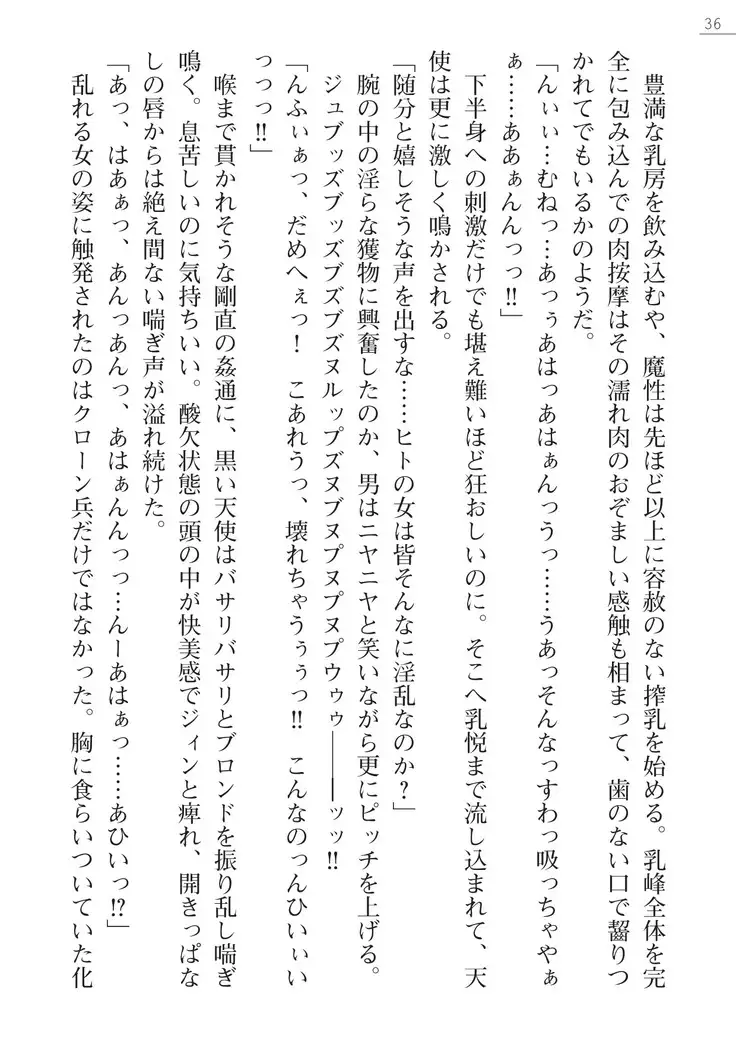 36
豊満な乳房を飲み込むや、魔性は先ほど以上に容赦のない搾乳を始める。乳峰全体を完
全に包み込んでの肉按摩はその濡れ肉のおぞましい感触も相まって、歯のない口で齧りつ
かれてでもいるかのようだ。
「んぃぃ…むねっ…あっぅあはっあはぁんっうっ……うあっそんなっすわっ吸っちゃやぁ
ぁ……ああぁんんっっ!!」
下半身への刺激だけでも堪え難いほど狂おしいのに。そこへ乳悦まで流し込まれて、天
使は更に激しく鳴かされる。
「随分と嬉しそうな声を出すな……ヒトの女は皆そんなに淫乱なのか?」
腕の中の淫らな獲物に興奮したのか、男はニヤニヤと笑いながら更にピッチを上げる。
ジュブッズブッズブズブズヌルップズヌブヌプヌプヌプウゥゥ――ッッ!!
「んふぃぁっ、だめへぇっ! こあれうっ、壊れちゃうぅぅっ!! こんなのっんひぃぃい
っっっ!!」
喉まで貫かれそうな剛直の姦通に、黒い天使はバサリバサリとブロンドを振り乱し喘ぎ
鳴く。息苦しいのに気持ちいい。酸欠状態の頭の中が快美感でジィンと痺れ、開きっぱな
しの唇からは絶え間ない喘ぎ声が溢れ続けた。
「あっ、はあぁっ、あんっあんっ、あはぁんんっっ…んーあはぁっ……あひいっ!?」
乱れる女の姿に触発されたのはクローン兵だけではなかった。胸に食らいついていた化